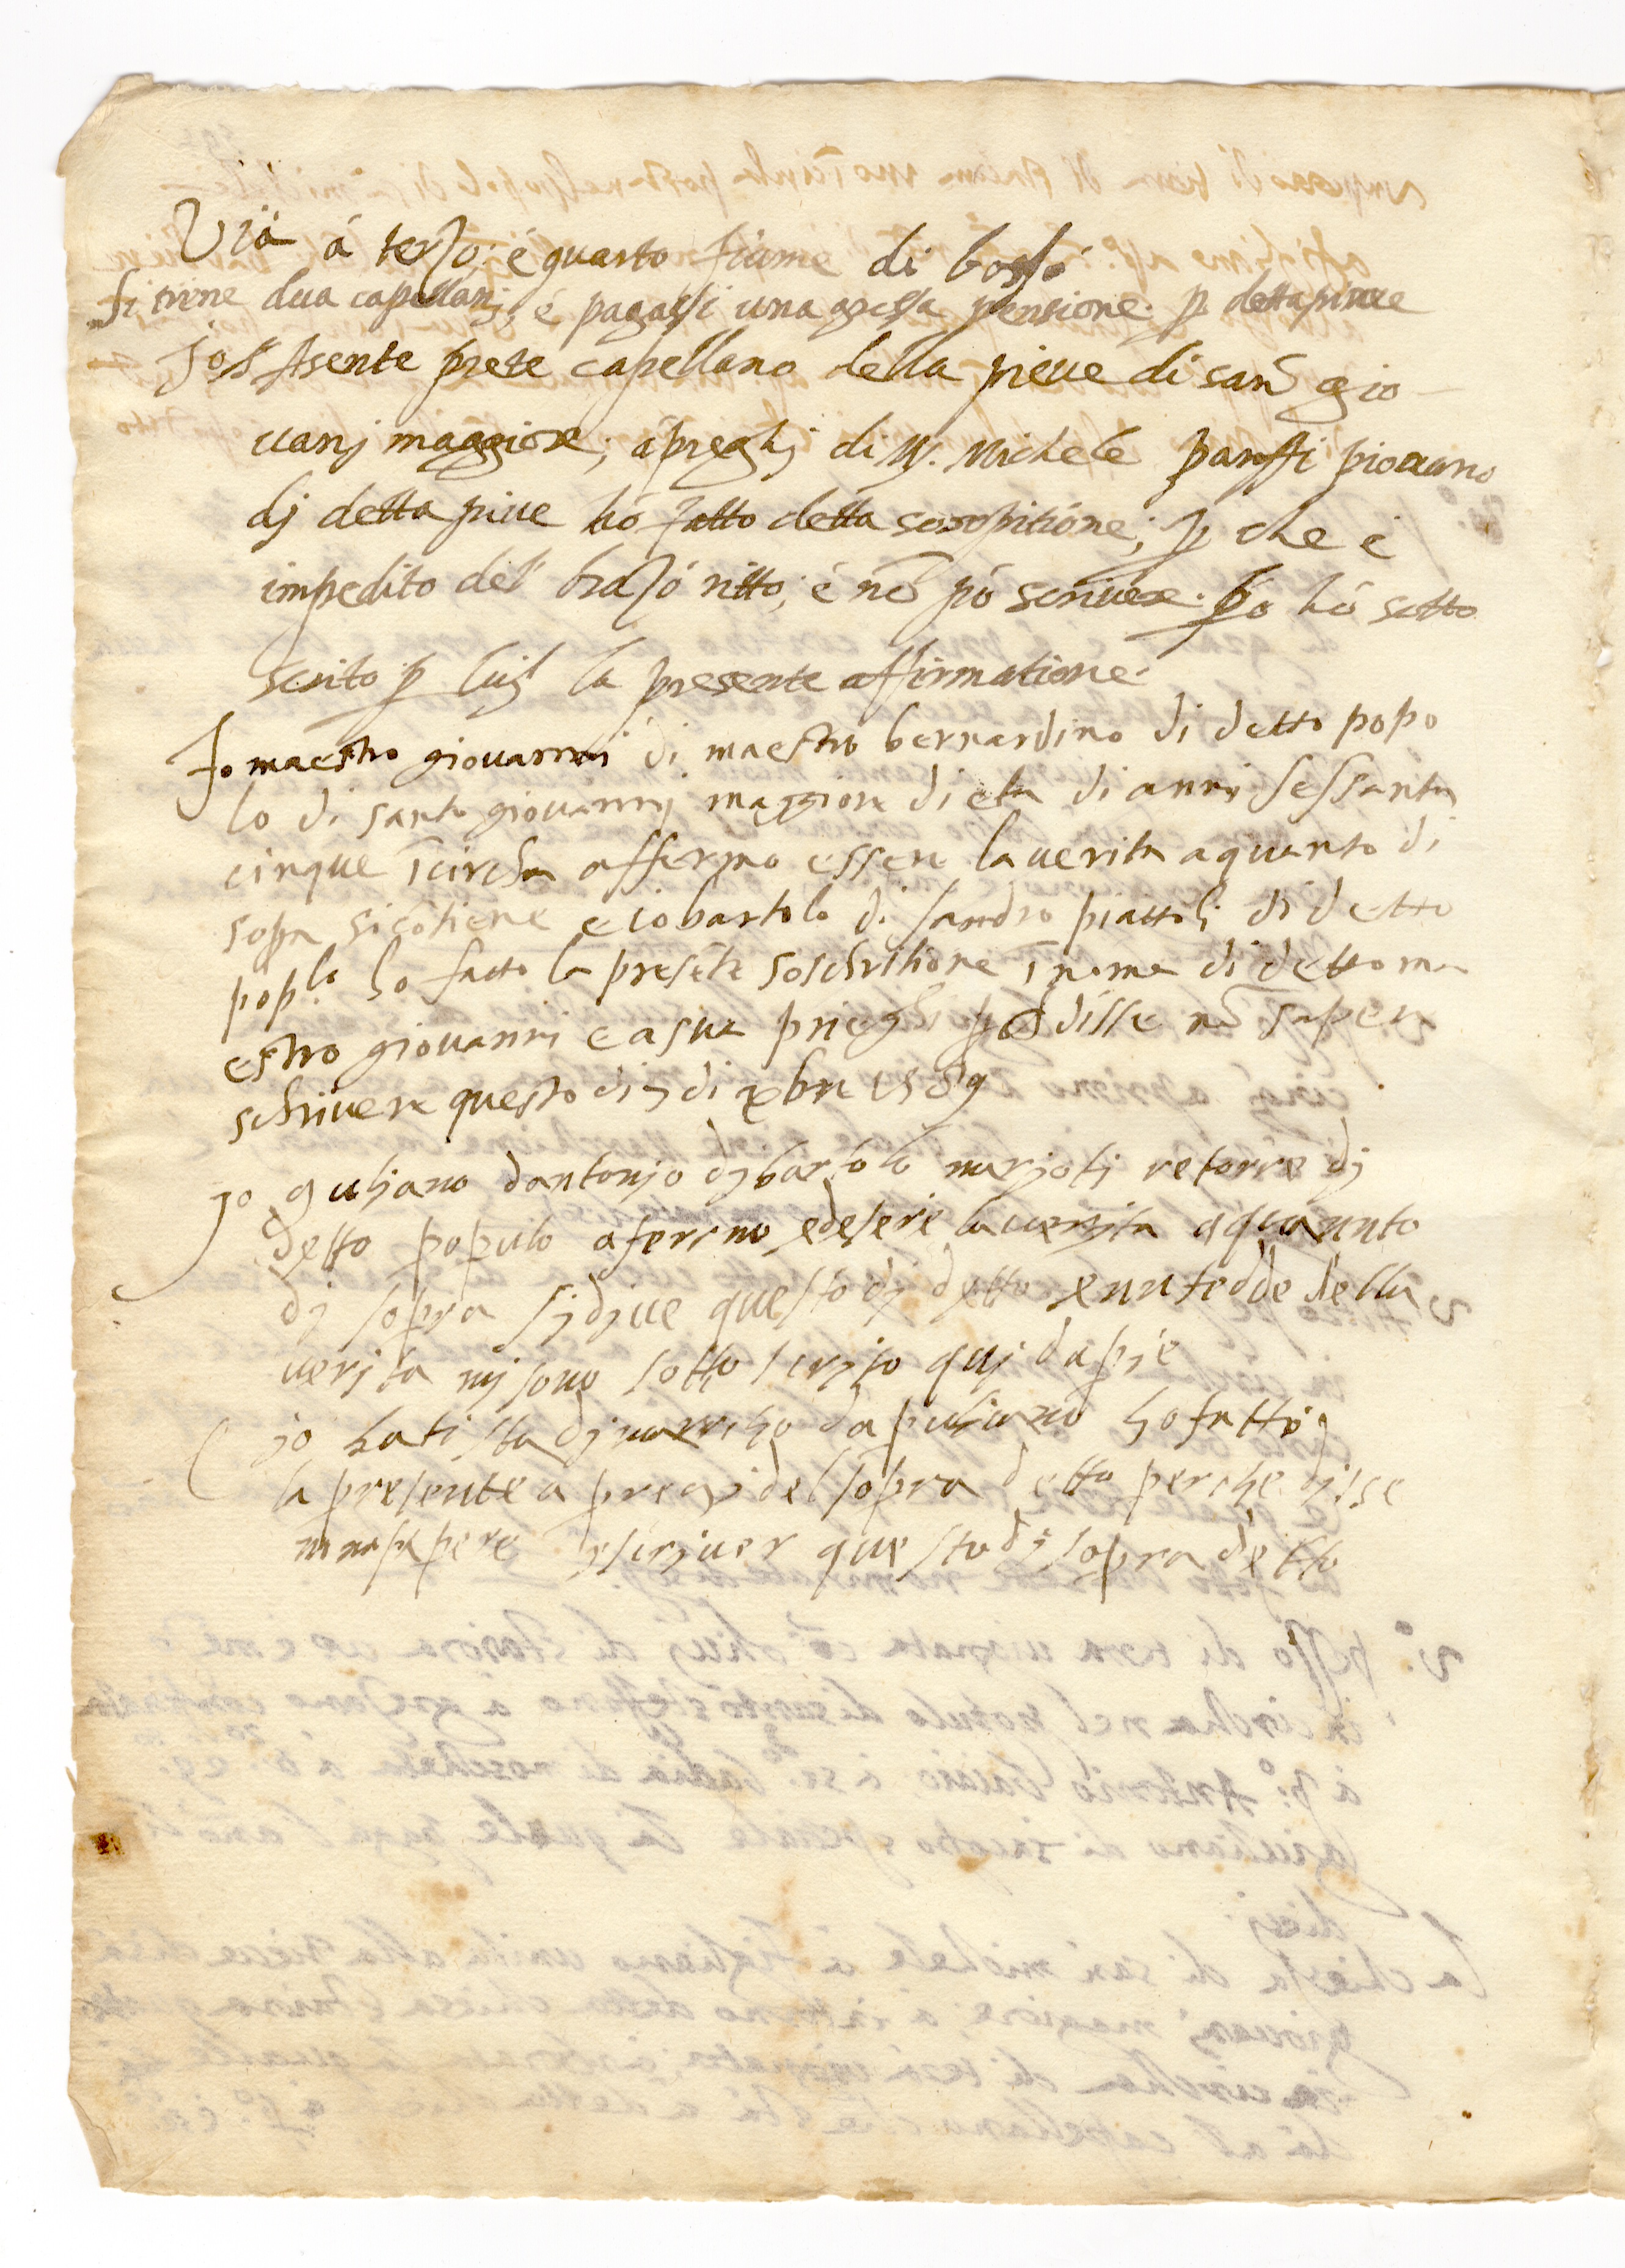 Via á terzo; é quarto fiume di bosso
si tiene dua capellanj, é pagassi una grossa pensione p detta pieve
prete capellano della pieve di san gio
uanj maggiore; á preghj di M. Michele piouano
dj detta pieue hó fatto detta soscritióne; p che é
impedito del brazó ritto; é nō pó scriuere. po hó sotto
scrito p luj la presente affirmatione.
Io maestro giovanni di maestro bernardino di detto popo
lo di santo giovannj maggiore di eta di anni sessanta
cinque ī circha affermo essere la uerita a quanto di
sopa si cōtiene e io bartolo di sandro piattoli di detto
popolo ho fatto la presēte soschritione ī nome di detto ma
estro giovanni e a sua prieghi p disse nō sapere
schriuere questo di 7 di xbre 1589
jo guljano dantonjo dj bartolo marjotj retorre dj
detto populo afermo esere la uerjta a quanto
dj sopra si dice questo dj detto e in fedde della
uerjta mj sono sotto scrjto quj da pie
jo batista dj da puljano ho fatto
la presente a pregi del sopra detto perche djsse
non sapere iscrjuer questo dj sopra detto